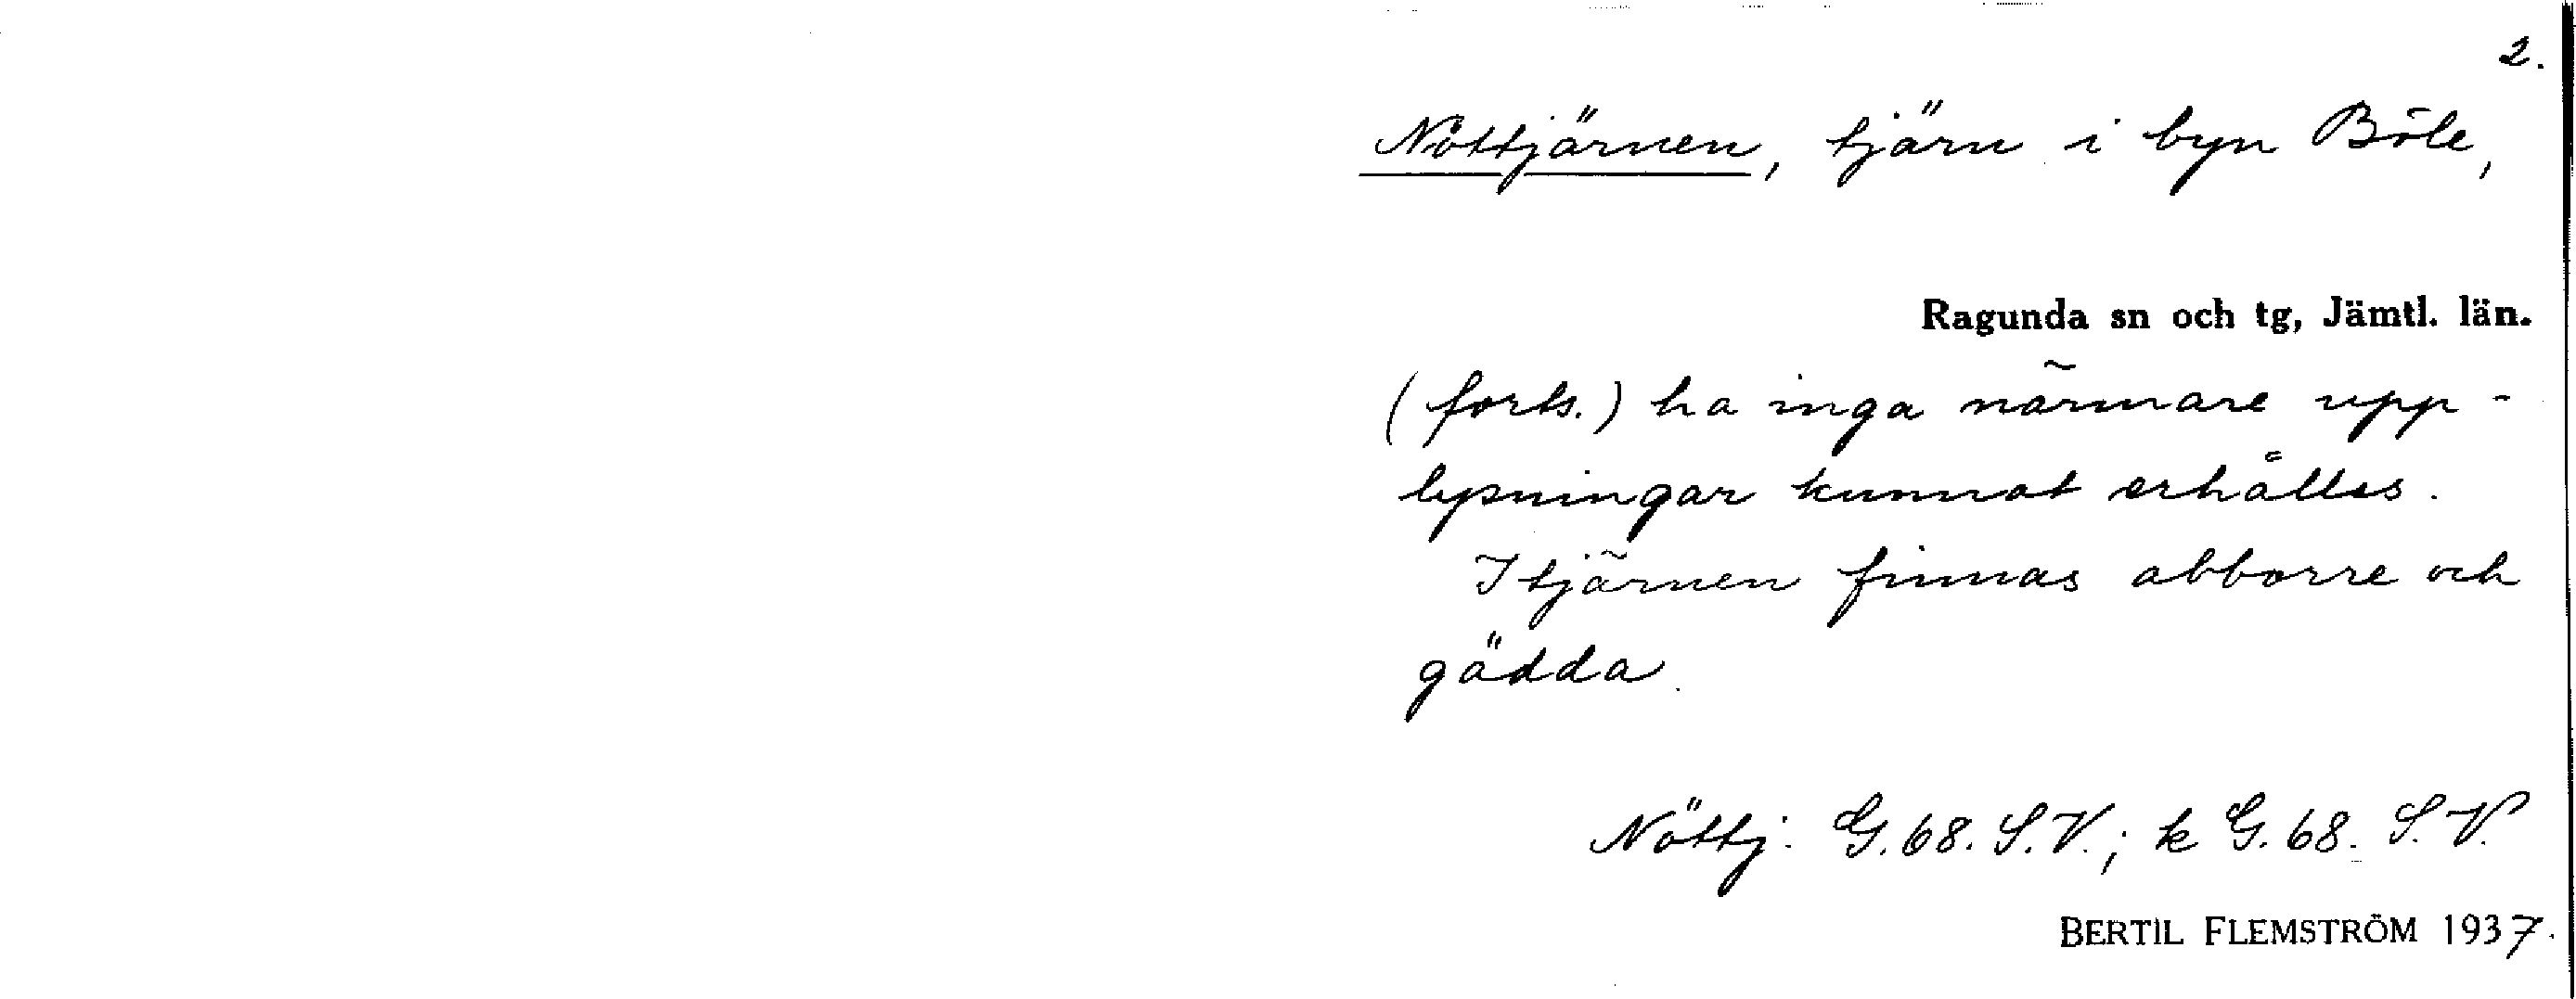 2.
Nöttjärnen, tjärn i byn Böle,
Ragunda sn och tg, Jämtl. län.
(forts.) ha inga närmare upp-
lysningar kunnat erhållas.
I tjärnen finnas abborre och
gädda.
Nöttj. G. 68. S. V.; k G. 68. S. V.
BERTIL FLEMSTRÖM 1937.